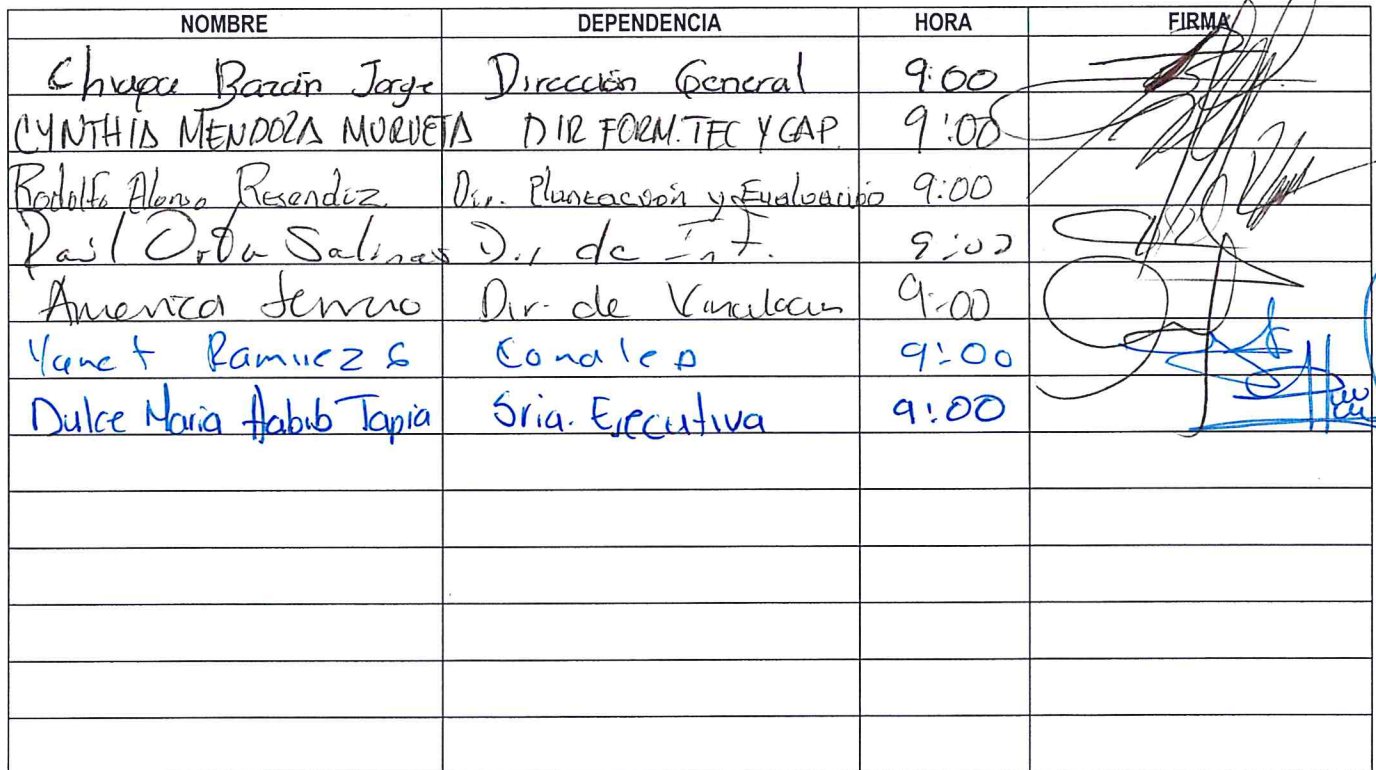 NOMBRE DEPENDENCIA HORA FIRMA
Chiapa Bazán Jorge Dirección General 9:00
CYNTHIA MENDOZA MURUETA DIR FORM. TEC Y CAP. 9:00
Rodolfo Alonso Resendiz Dir. Planeación y Evaluación 9:00
Raúl Salinas Dir de Inf. 9:00
America Dir. de Vinculacion 9:00
Yanet Ramirez S Conalep 9:00
Dulce Maria Habib Tapia Sria. Ejecutiva 9:00